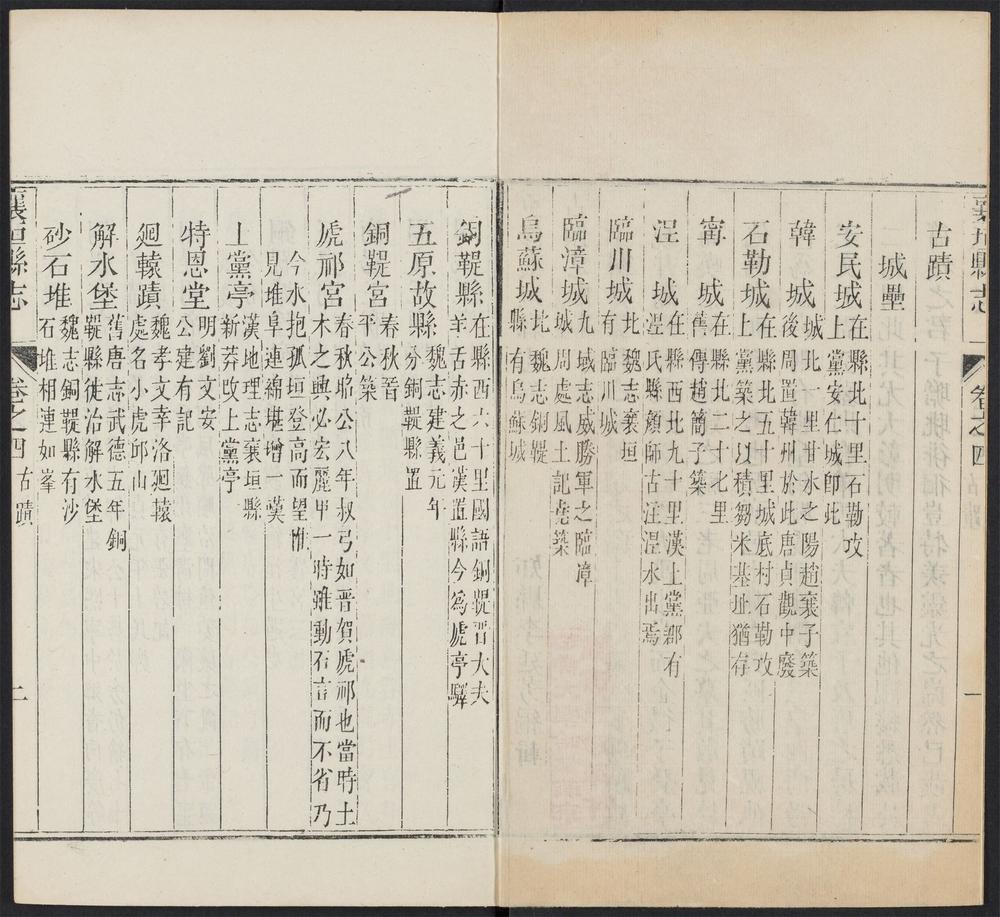 襄垣縣志
卷之四
一
古蹟
城壘
安民城在縣北十里石勒攻
上黨安仁城卽此
韓城城北一里甘水之陽趙襄子築
後周置韓州於此唐貞觀中廢
石勒城在縣北五十里城底村石勒攻
上黨築之以積芻米基址猶存
甯城在縣北二十七里
舊傳趙簡子築
涅城在縣西北九十里漢上黨郡有
涅氏縣顏師古注涅水出焉
臨川城北魏志襄垣
有臨川城
臨漳城九域志威勝軍之臨漳
城周處風土記堯築
烏蘇城北魏志銅鞮
縣有烏蘇城
銅鞮縣在縣西六十里國語銅鞮晋大夫
羊舌赤之邑漢置縣今爲虒亭驛
五原故縣魏志建義元年
分銅鞮縣置
銅鞮宮春秋晋
平公築
虒祁宮春秋昭公八年叔弓如晋賀虒祁也當時土
木之興必宏麗甲一時雖動石言而不省乃
今水抱孤垣登高而望惟
見堆阜連綿堪增一嘆
上黨亭漢地理志襄垣縣
新莽改上黨亭
特恩堂明劉文安
公建有記
廻轅蹟魏孝文幸洛廻轅
處名小虎邱山
解水堡舊唐志武德五年銅
鞮縣徙治解水堡
砂石堆魏志銅鞮縣有沙
石堆相連如峯
襄垣縣志
卷之四 古蹟
二